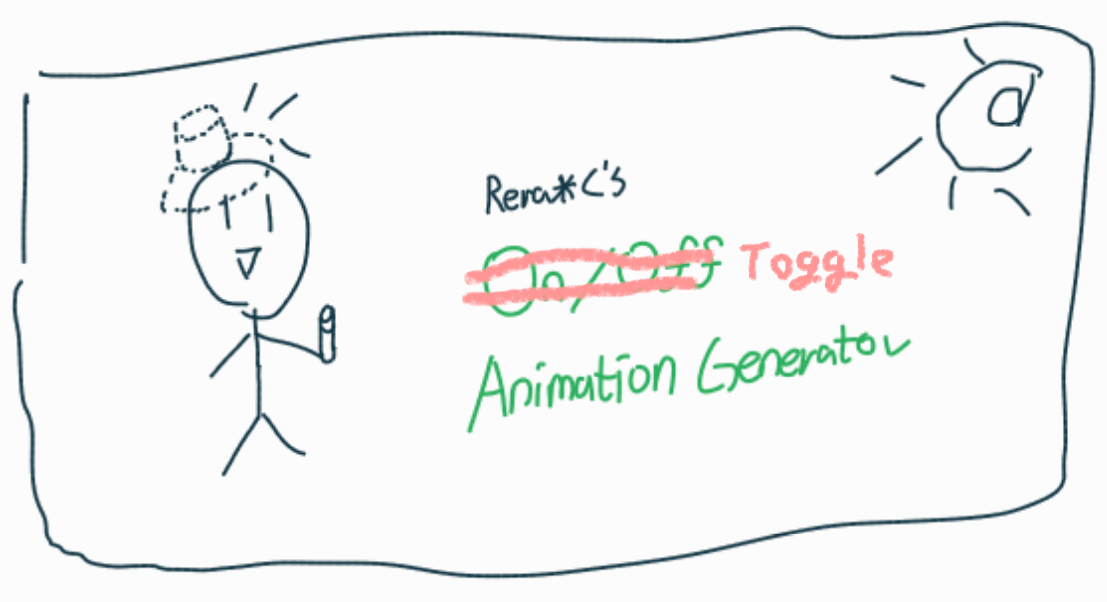 Rera*C's
On/Off Toggle
Animation Generator